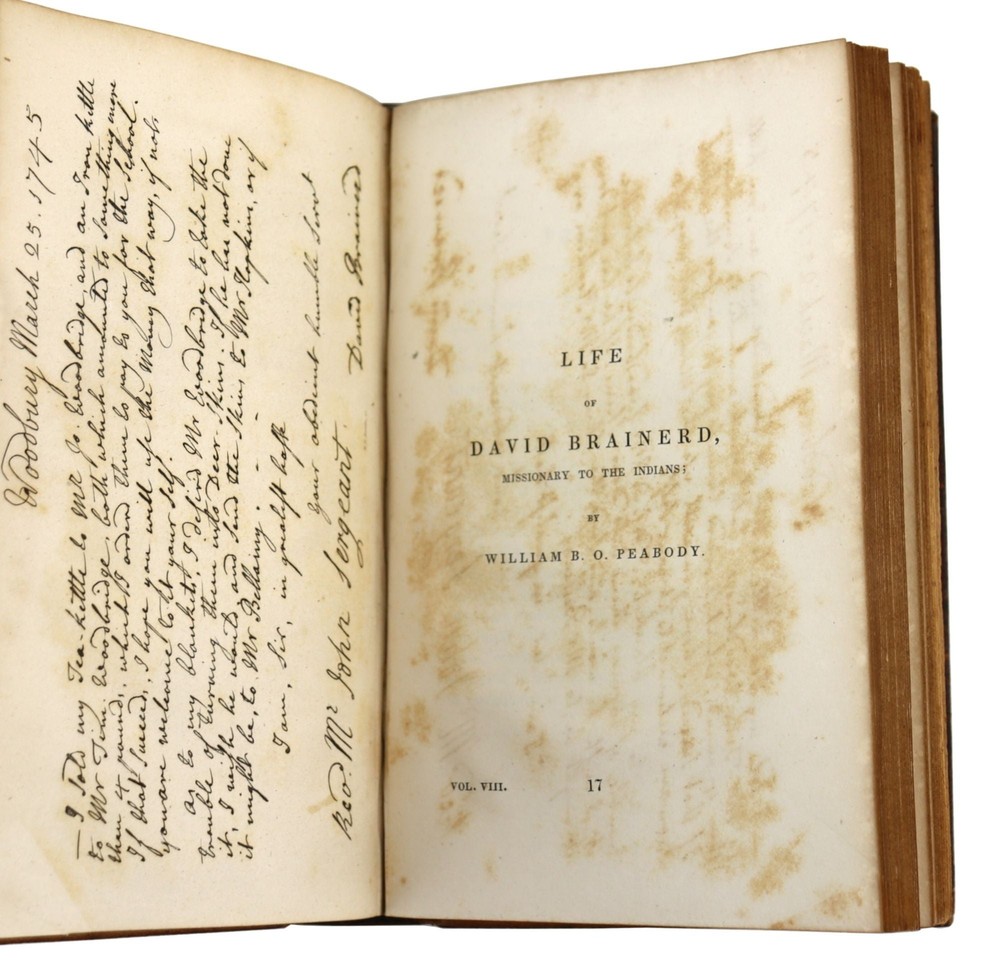 Woodbury March 25. 1745
I sold my Tea-kettle to Mr Jo. Woodbridge, and an Iron kettle
to Mr Tim. Woodbridge, both which amounted to something more
then 4 pound, which I ordered them to pay to you for the School.
If that succeed, I hope you will use the Money that way, if not,
you are welcome to it your self.
as to my blankets, I desired Mr Woodbridge to take the
trouble of turning them into Deer-Skins. If he has not done
it, I wish he would, and send the Skins to Mr Hopkins, or if
it might be, to Mr Bellamy.
I am, Sir, in greatest haste
your obedient humble Servt
David Brainerd
Revd. Mr John Sergeant.
LIFE
OF
DAVID BRAINERD,
MISSIONARY TO THE INDIANS;
BY
WILLIAM B. O. PEABODY.
VOL. VIII. 17